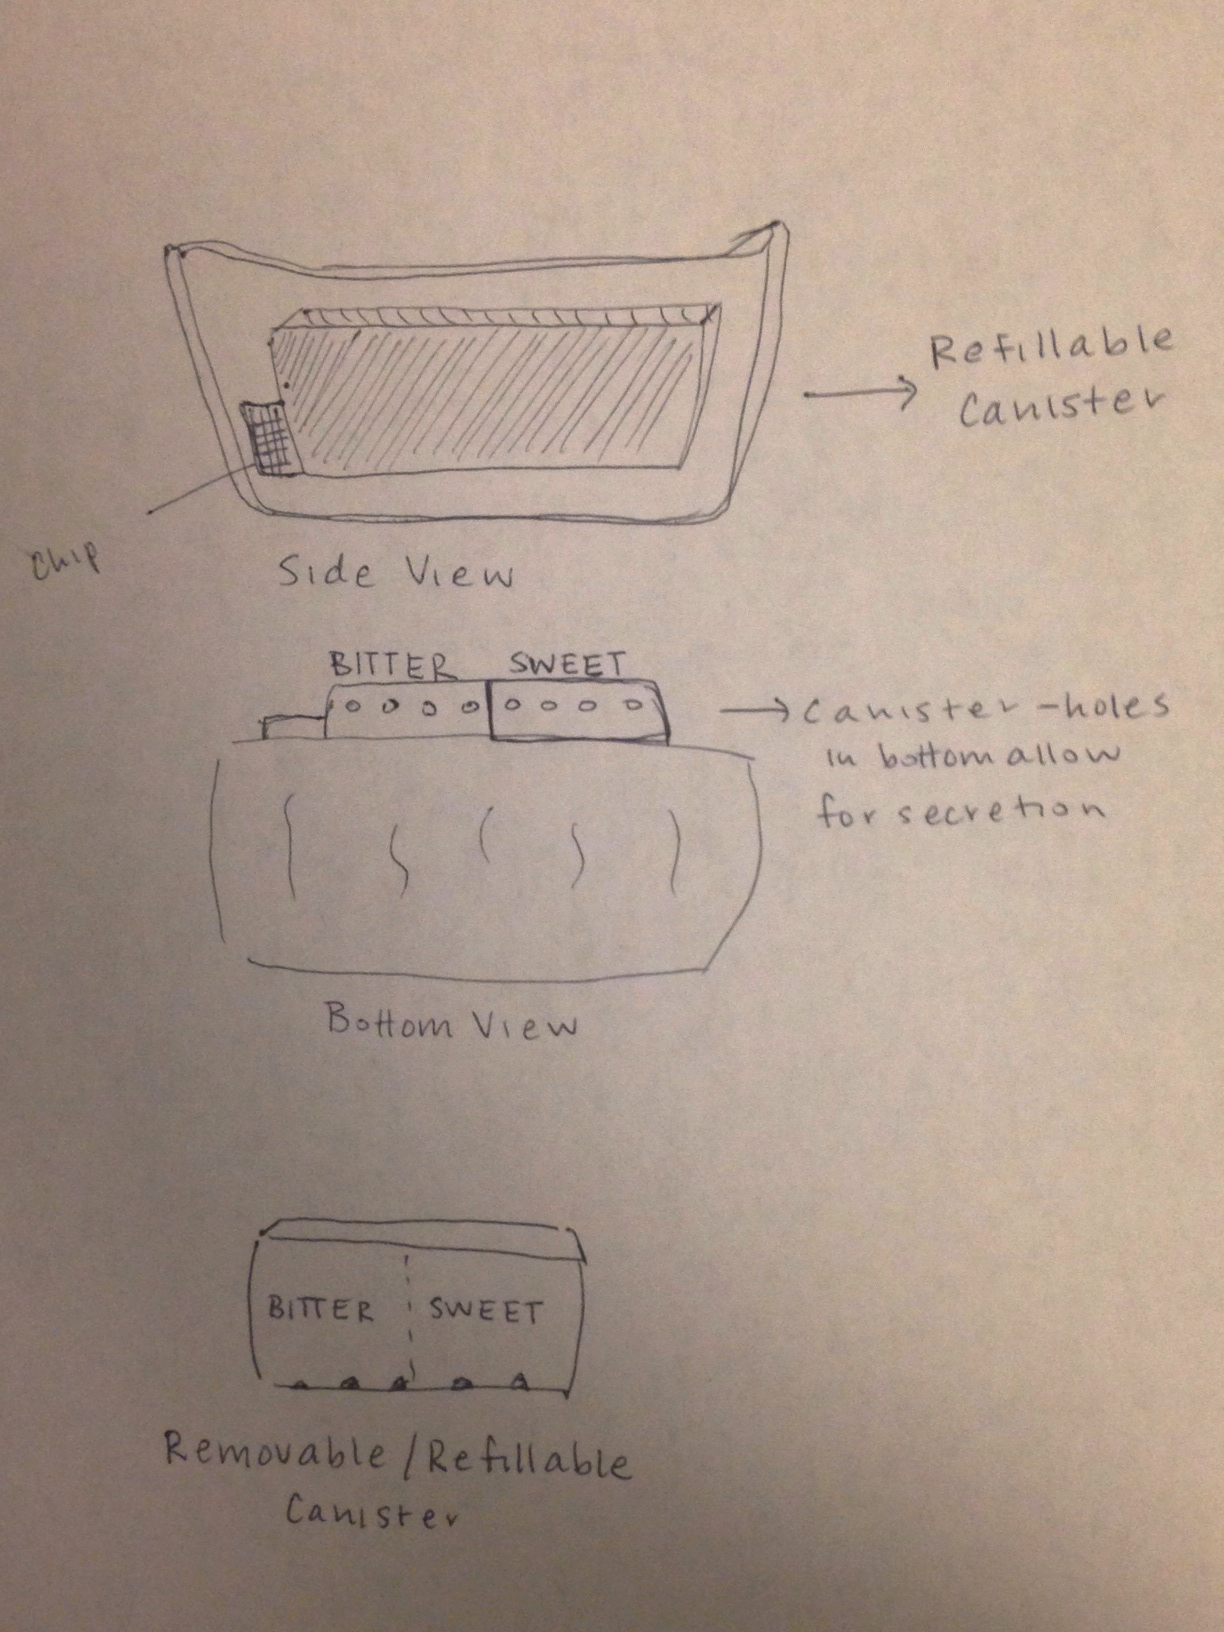 Refillable
Canister
Chip
Side View
BITTER SWEET
Canister-holes
in bottom allow
for secretion
Bottom View
BITTER SWEET
Removable/Refillable
Canister